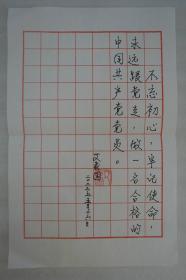 不忘初心，牢记使命，
永远跟党走，做一名合格的
中国共产党党员。